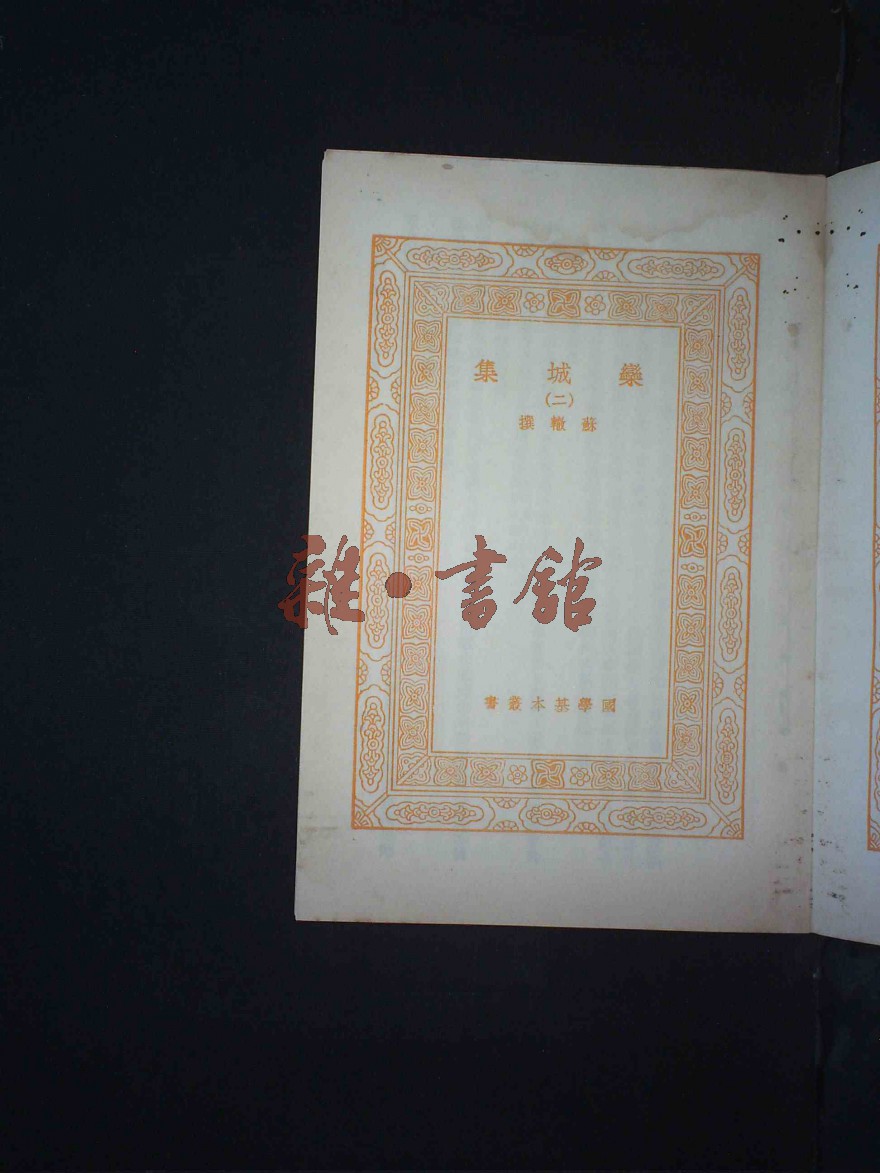 欒城集
(二)
蘇轍撰
雜·書舘
國學基本叢書